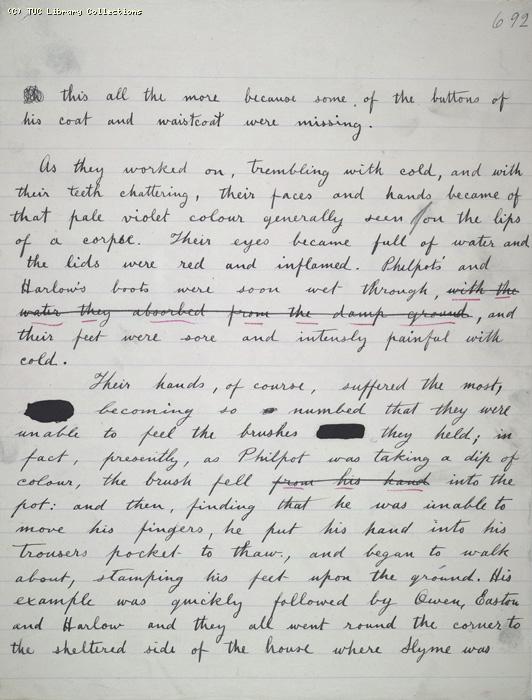 (C) TUC Library Collections
692
this all the more because some of the buttons of
his coat and waistcoat were missing.
As they worked on, trembling with cold, and with
their teeth chattering, their faces and hands became of
that pale violet colour generally seen on the lips
of a corpse. Their eyes became full of water and
the lids were red and inflamed. Philpot's and
Harlow's boots were soon wet through, with the
water they absorbed from the damp ground, and
their feet were sore and intensly painful with
cold.
Their hands, of course, suffered the most,
becoming so numbed that they were
unable to feel the brushes they held; in
fact, presently, as Philpot was taking a dip of
colour, the brush fell from his hand into the
pot: and then, finding that he was unable to
move his fingers, he put his hand into his
trousers pocket to thaw, and began to walk
about, stamping his feet upon the ground. His
example was quickly followed by Owen, Easton
and Harlow and they all went round the corner to
the sheltered side of the house where Slyme was